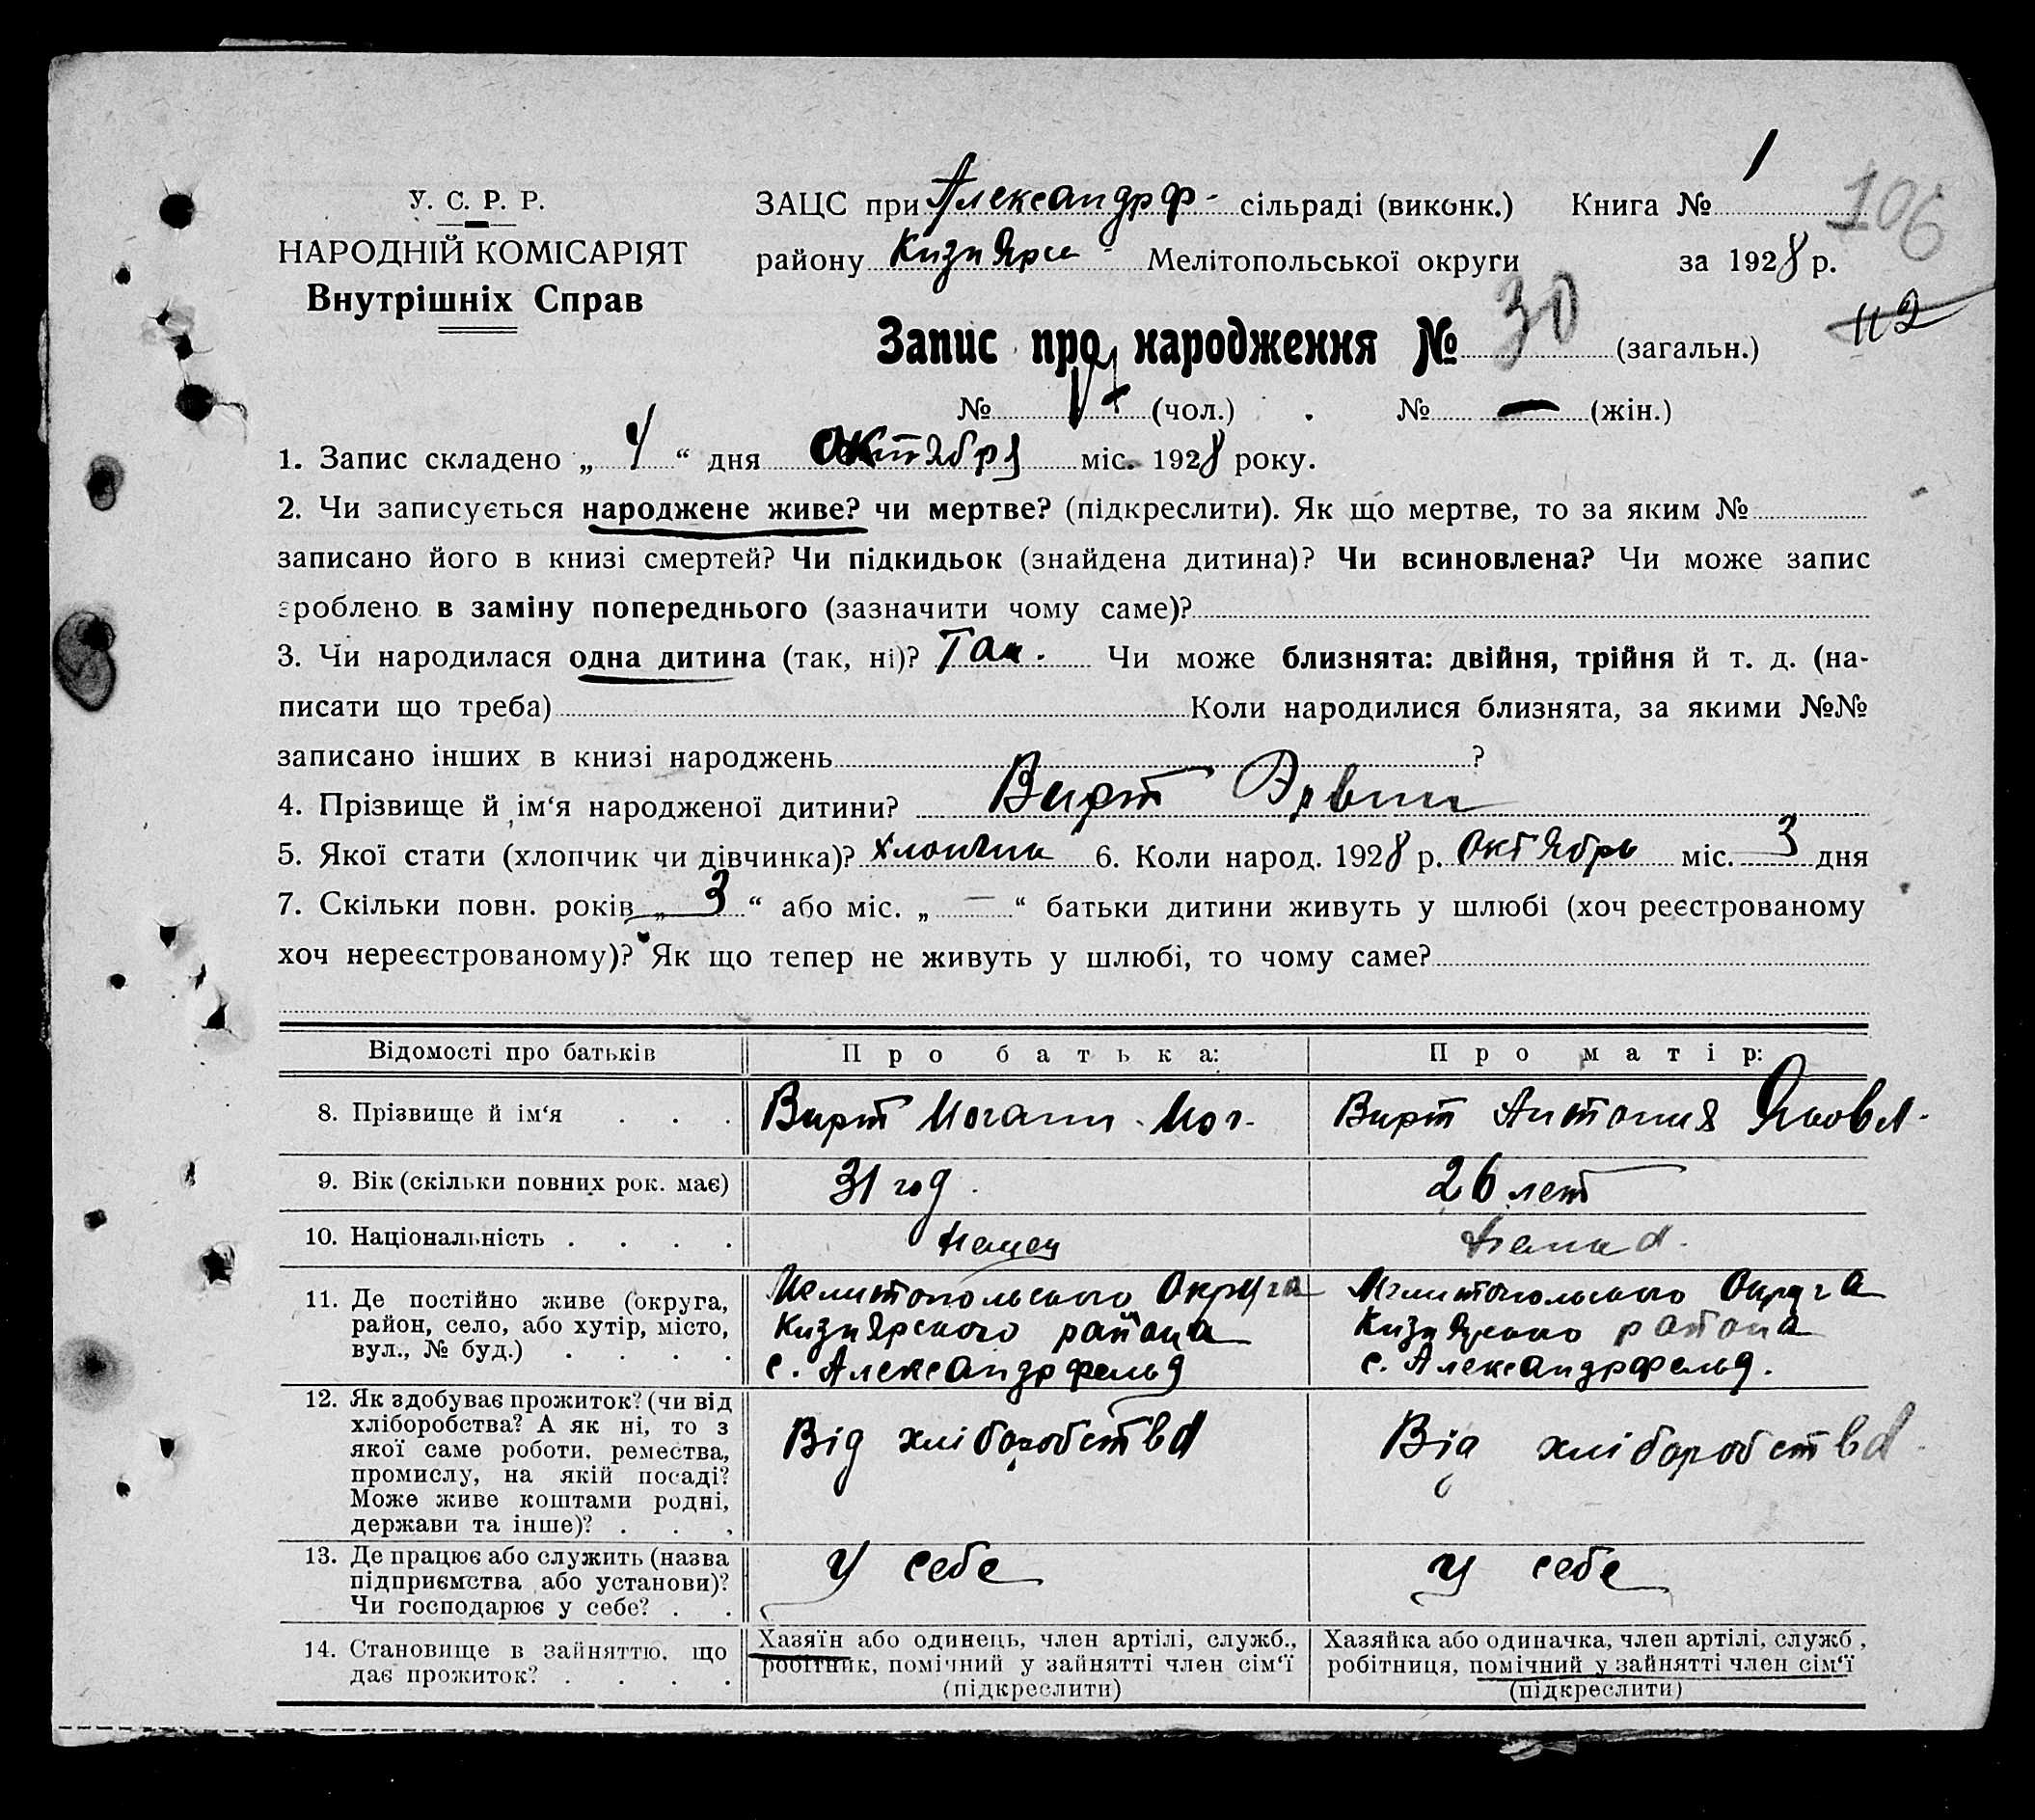 1
106
У. С. Р. Р.
НАРОДНІЙ КОМІСАРІЯТ
Внутрішніх Справ
ЗАЦС при Александрф- сільраді (виконк.) Книга №
району КизиЯрск- Мелітопольської округи за 1928 р.
112
Запис про народження № 30 (загальн.)
№ 17 (чол.) № — (жін.)
1. Запис складено „ 4 “ дня Октября міс. 1928 року.
2. Чи записується народжене живе? чи мертве? (підкреслити). Як що мертве, то за яким №
записано його в книзі смертей? Чи підкидьок (знайдена дитина)? Чи всиновлена? Чи може запис
зроблено в заміну попереднього (зазначити чому саме)?
3. Чи народилася одна дитина (так, ні)? Так. Чи може близнята: двійня, трійня й т. д. (на-
писати що треба) Коли народилися близнята, за якими №№
записано інших в книзі народжень ?
4. Прізвище й ім‘я народженої дитини? Вирт Эрвин
5. Якої стати (хлопчик чи дівчинка)? 6. Коли народ. 1928 р. Октябрь міс. 3 дня
7. Скільки повн. років „ 3 “ або міс. „ — “ батьки дитини живуть у шлюбі (хоч реєстрованому
хоч нереєстрованому)? Як що тепер не живуть у шлюбі, то чому саме?
Відомості про батьків Про батька: Про матір:
8. Прізвище й ім‘я . . . Вирт Иоганн Иог. Вирт Антония Яковл.
9. Вік (скільки повних рок. має) 31 год. 26 лет
10. Національність . . . . Немец
11. Де постійно живе (округа, Мелитопольского Округа Мелитопольского Округа
район, село, або хутір, місто, Кизиярского района Кизиярского района
вул., № буд.) . . . . с. Александрфельд с. Александрфельд.
12. Як здобуває прожиток? (чи від
хліборобства? А як ні, то з
якої саме роботи, ремества, Від хліборобства Від хліборобства
промислу, на якій посаді?
Може живе коштами родні,
держави та інше)? . . .
13. Де працює або служить (назва У себе У себе
підприємства або установи)?
Чи господарює у себе? . .
14. Становище в зайняттю, що Хазяїн або одинець, член артілі, служб., Хазяйка або одиначка, член артілі, служб.,
дає прожиток? . . . . робітник, помічний у зайнятті член сім‘ї робітниця, помічний у зайнятті член сім‘ї
(підкреслити) (підкреслити)